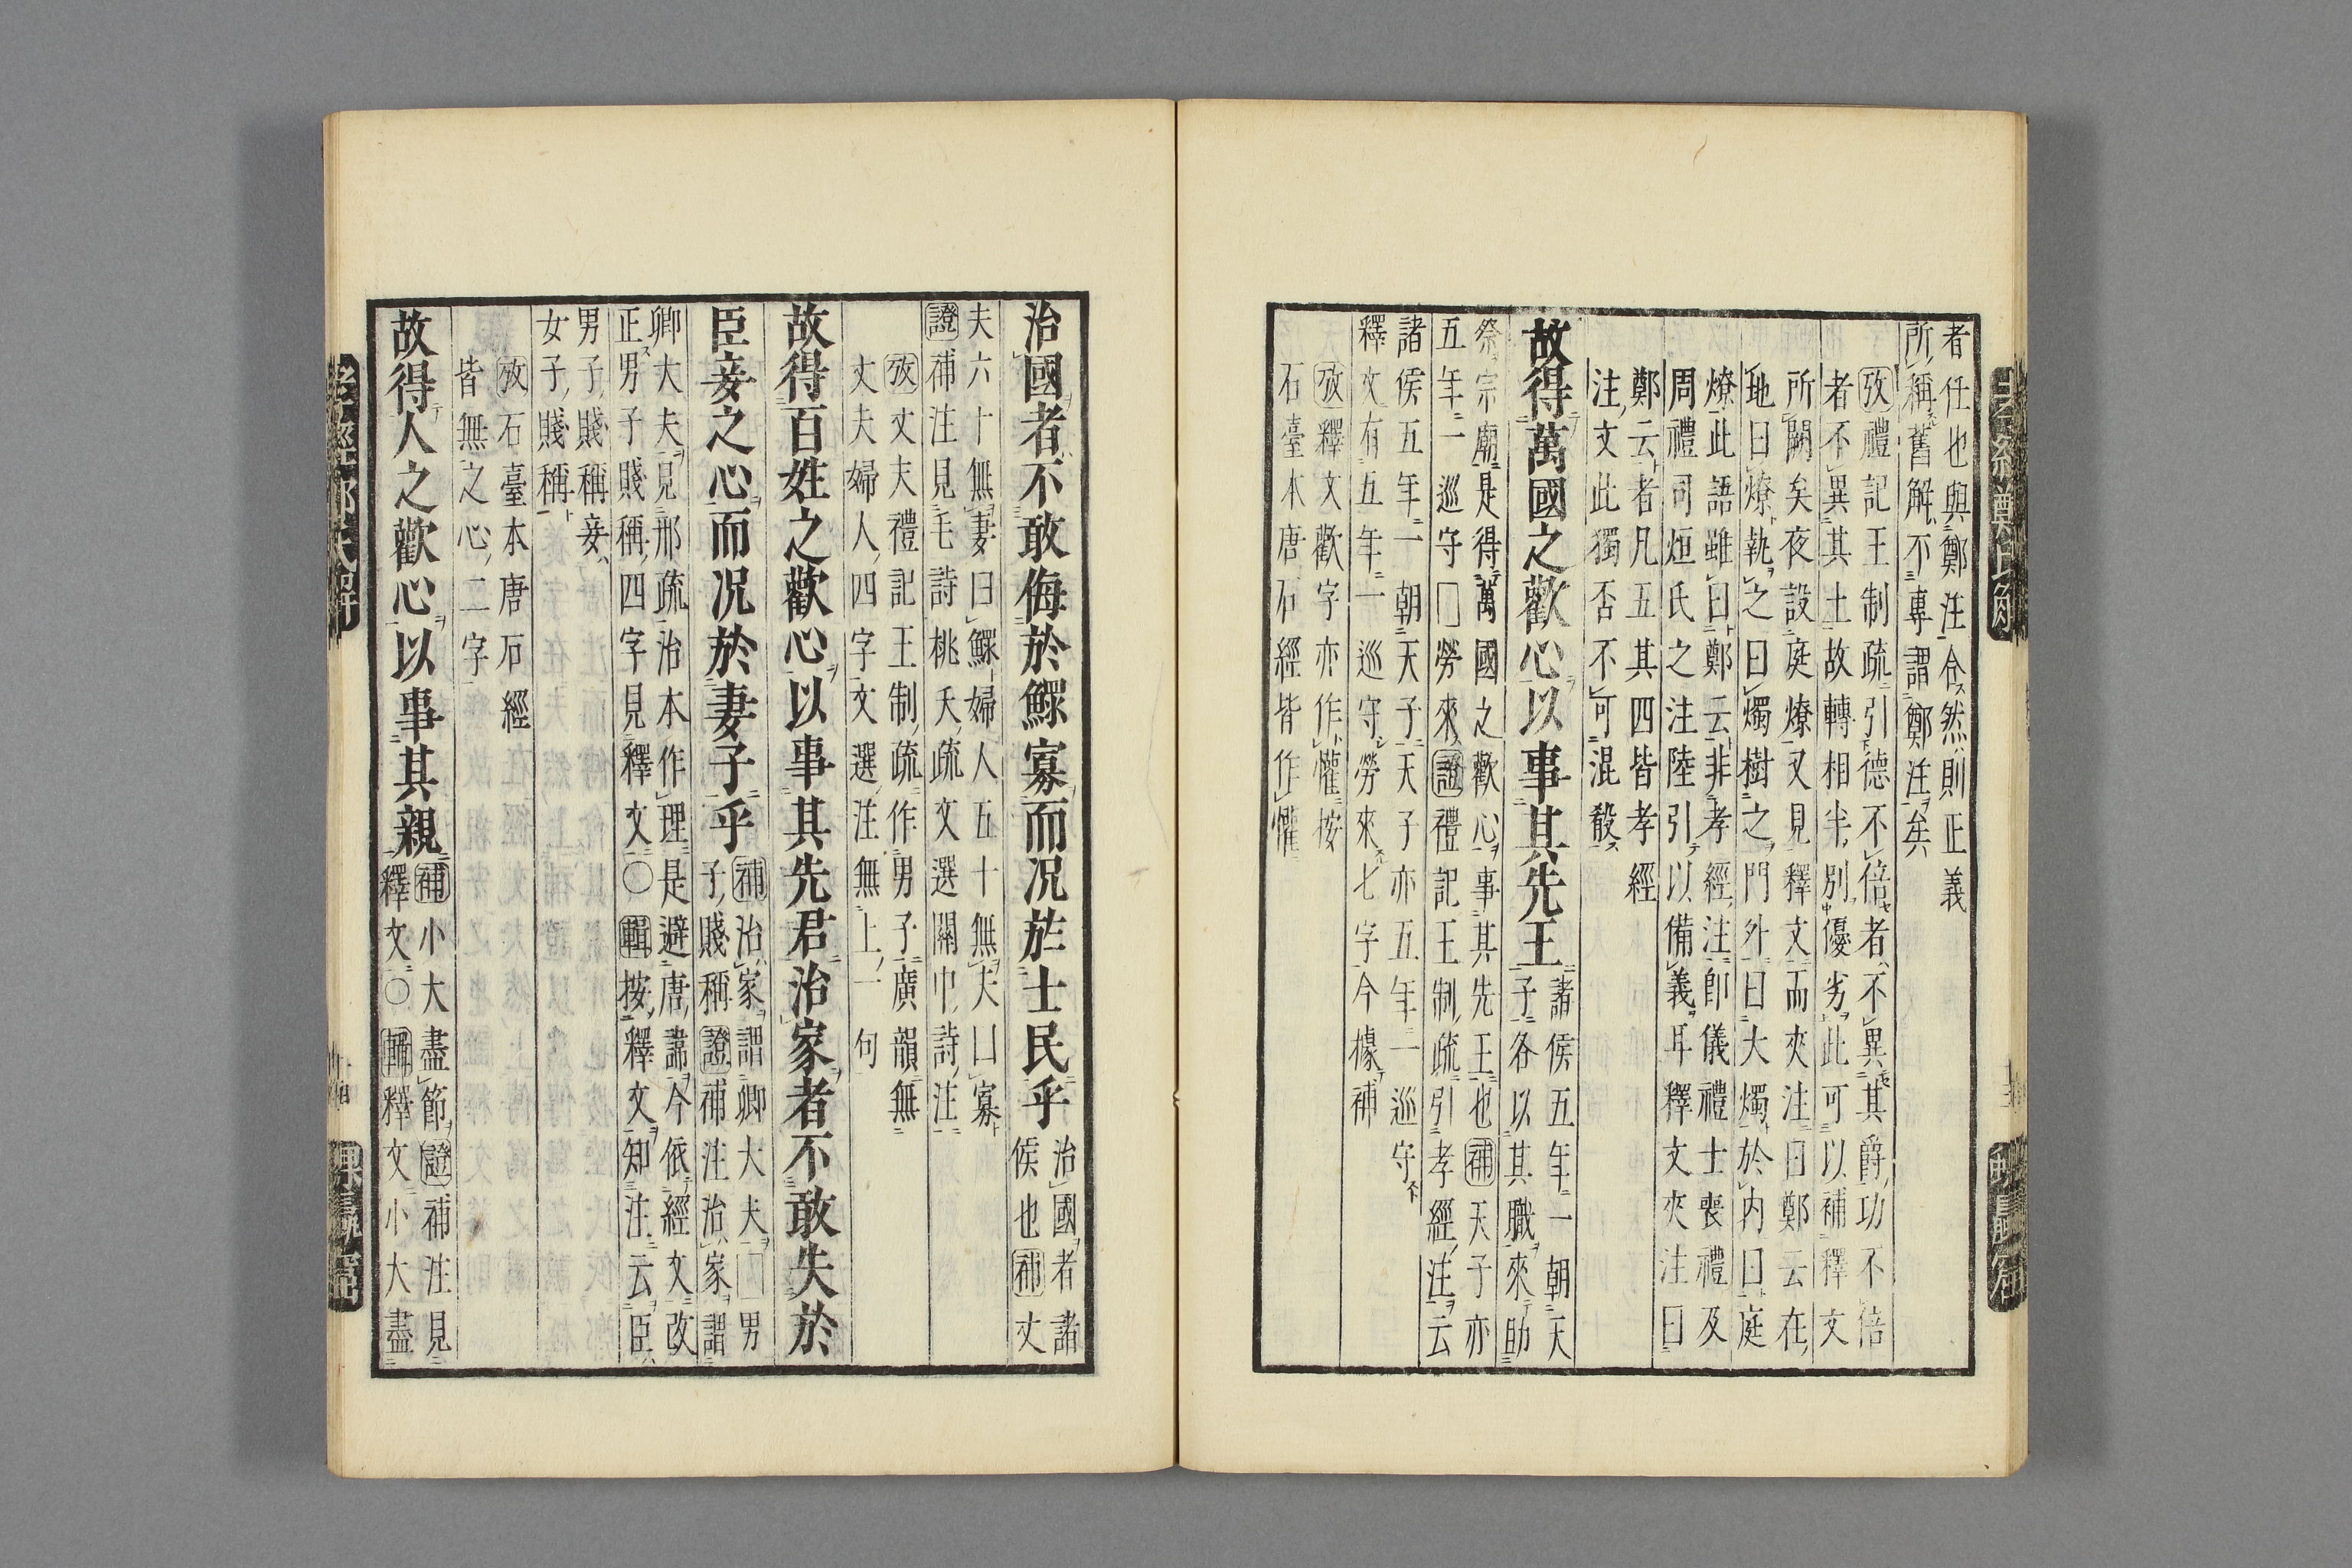 者任也與鄭注一合然則正義
所稱舊解不專謂鄭注矣
攷禮記王制疏引德不倍者不異其爵功不倍
者不異其土故轉相半別優劣此可以補釋文
所闕矣夜設庭燎又見釋文而夾注曰鄭云在
地曰燎執之曰燭樹之門外曰大燭於內曰庭
燎此語雖曰鄭云非孝經注卽儀禮士喪禮及
周禮司烜氏之注陸引以備義耳釋文夾注曰
鄭云者凡五其四皆孝經
注文此獨否不可混殽
故得萬國之歡心以事其先王
諸侯五年一朝天
子各以其職來助
祭宗廟是得萬國之歡心事其先王也補天子亦
五年一巡守□勞來證禮記王制疏引孝經注云
諸侯五年一朝天子天子亦五年一巡守
釋文有五年一巡守勞來七字今據補
攷釋文歡字亦作懽按
石臺本唐石經皆作懽
治國者不敢侮於鰥寡而況於士民乎
治國者諸
侯也補丈
夫六十無妻曰鰥婦人五十無夫曰寡
證補注見毛詩桃夭疏文選關中詩注
攷丈夫禮記王制疏作男子廣韻無
丈夫婦人四字文選注無上一句
故得百姓之歡心以事其先君治家者不敢失於
臣妾之心而況於妻子乎
補治家謂卿大夫□男
子賤稱證補注治家謂
卿大夫見邢疏治本作理是避唐諱今依經文改
正男子賤稱四字見釋文○輯按釋文知注云臣
男子賤稱妾
女子賤稱
攷石臺本唐石經
皆無之心二字
故得人之歡心以事其親
補小大盡節證補注見
釋文○輯釋文小大盡